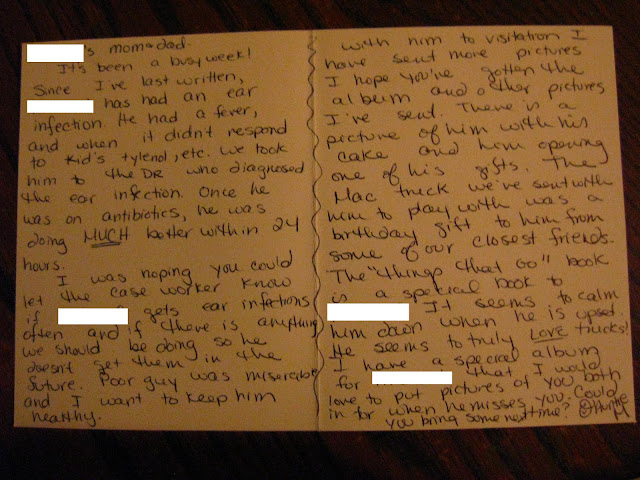 's mom & dad.
It's been a busy week!
Since I've last written,
has had an ear
infection. He had a fever,
and when it didn't respond
to Kid's tylenol, etc. we took
him to the DR who diagnosed
the ear infection. Once he
was on antibiotics, he was
doing MUCH better within 24
hours.
I was hoping you could
let the case worker know
if gets ear infections
often and if there is anything
we should be doing so he
doesn't get them in the
future. Poor guy was miserable
and I want to keep him
healthy.
with him to visitation I
have sent more pictures
I hope you've gotten the
album and other pictures
I've sent. There is a
picture of him with his
cake and him opening
one of his gifts. The
Mac truck we've sent with
him to play with was a
birthday gift to him from
some of our closest friends.
The "things that Go" book
is a special book to
It seems to calm
him down when he is upset.
He seems to truly LOVE trucks!
I have a special album
for that I would
love to put pictures of you both
in for when he misses you. Could
you bring some next time?